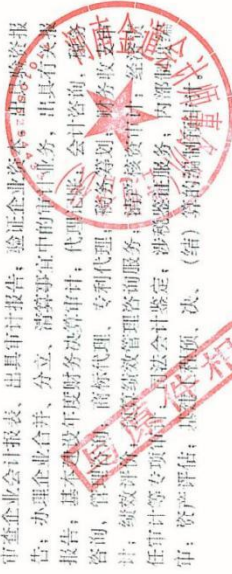 审查企业会计报表、出具审计报告；验证企业资本、出具验资报
告；办理企业合并、分立、清算事宜中的审计业务，出具有关报
报告；基本建设年度财务决算审计；代理记账、会计咨询、税务
咨询、管理 商标代理、专利代理 税务筹划 财务收支
计；绩效评价 绩效管理咨询服务；清产核资 经济
任审计等专项审 司法会计鉴定；涉税鉴证服务；内部
审；资产评估； 预、决、（结）算的编制审计。
会计师事务所
与原件相